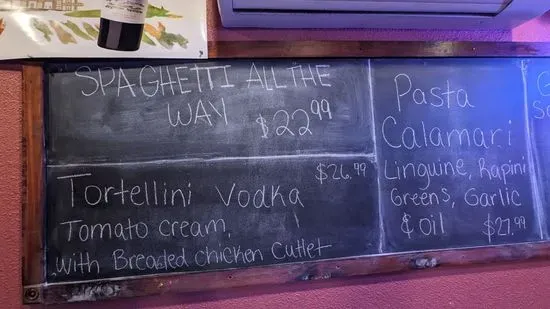 SPAGHETTI ALL THE
WAY $22.99
Tortellini Vodka $26.99
Tomato cream,
with Breaded chicken Cutlet
Pasta
Calamari
Linguine, Rapini
Greens, Garlic
& oil $27.99